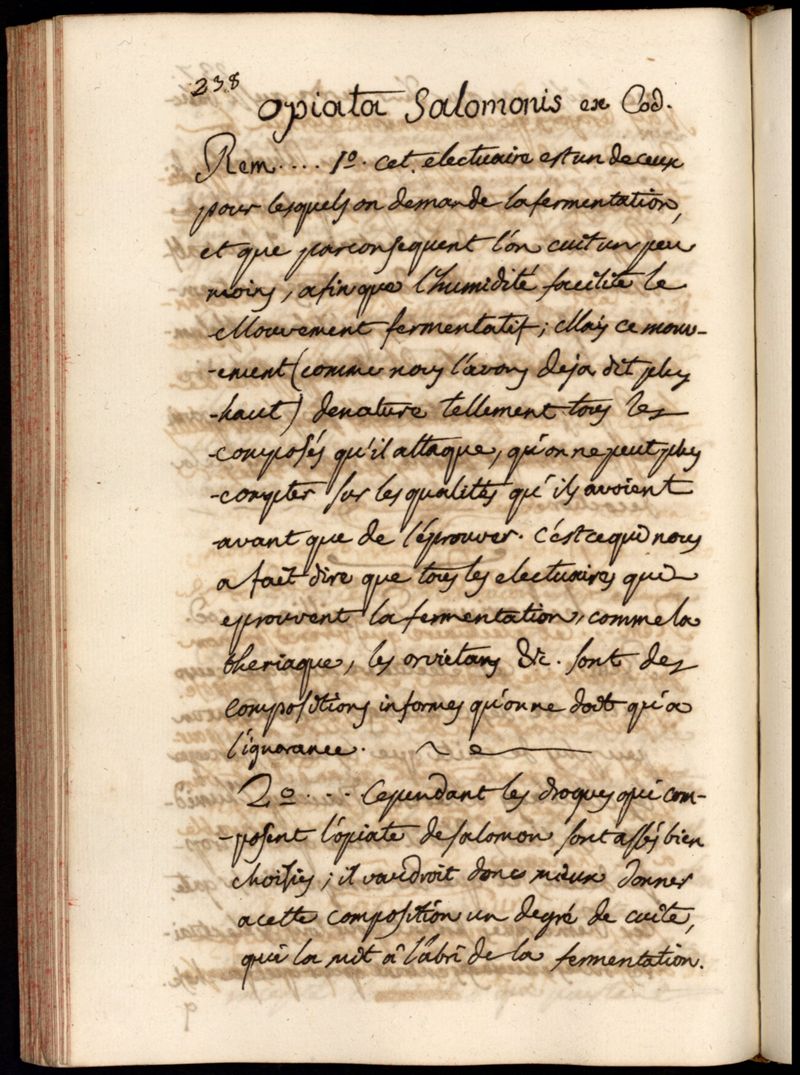 238
opiata Salomonis ex Cod.
Rem.... 1º. cet electuaire est un de ceux
pour lesquels on demande la fermentation,
et que parconsequent l'on cuit un peu
moins, afin que l'humidité facilite le
Mouvement fermentatif; Mais ce mouv-
-ement (comme nous l'avons deja dit plus
haut) denature tellement tous les
composés qu'il attaque, qu'on ne peut plus
compter sur les qualités qu'ils avoient
avant que de l'éprouver. c'est ce qui nous
a fait dire que tous les electuaires qui
eprouvent la fermentation, comme la
theriaque, les orvietans &c. sont des
compositions informes qu'on ne doit qu'a
l'ignorance.
2º.... Cependant les drogues qui com-
-posent l'opiate de salomon sont assés bien
choisies; il vaudroit donc mieux donner
a cette composition un degré de cuite,
qui la mit â l'abri de la fermentation.